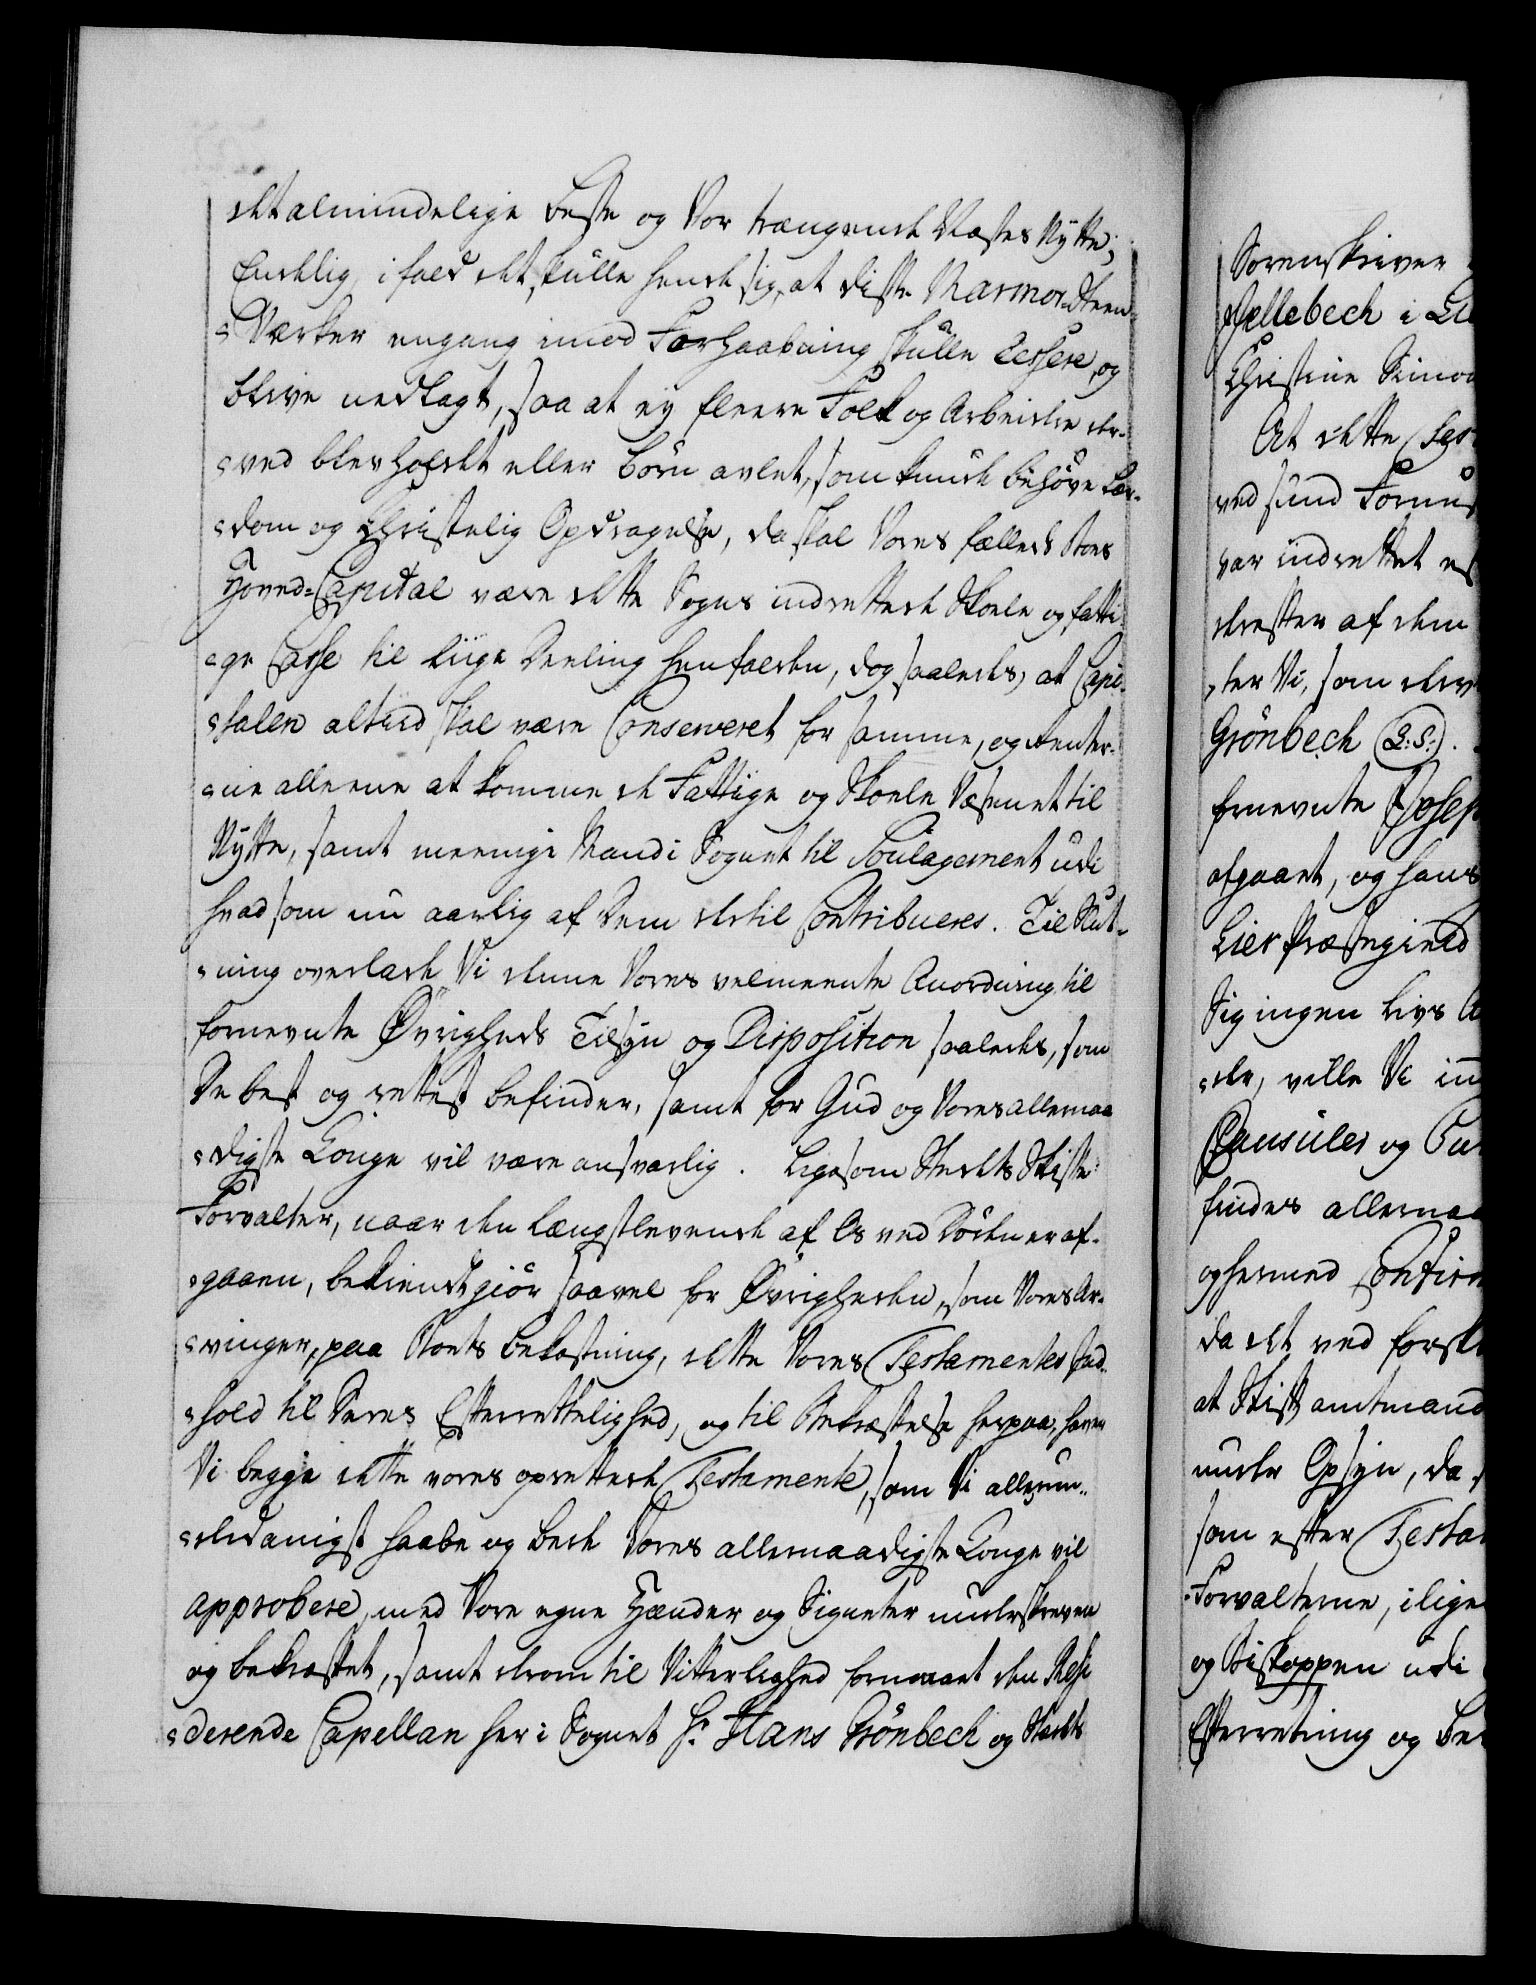 det almindelige beste og Vor trængende Næstes Nÿtte;
Endelig, i fald det skulle hende sig, at disse Marmor-Steen-
Værker engang imod Forhaabning skulle cessere, og
blive nedlagt, saa at eÿ fleere Folk og Arbeidere der-
ved blev holdet eller børn avlet, som kunde behøve Lær-
dom og Christelig Opdragelse, da skal Vores fælleds Boes
Hoved-Capital være dette Sogns indrettede Skoele og Fatti-
ge Casse til liige Deeling henfalden, dog saaledes, at Capi-
talen altiid skal være Conserveret for samme, og Renter-
ne alleene at komme de Fattige og Skoele Væsenet til
Nÿtte, samt meenige Mand i Sognet til Soulagement udi
hvad som nu aarlig af Dem dertil Contribueres. Til Slut-
ning overlade Vi denne Vores velmeente Anordning til
fornevnte Øvrigheds Tilsÿn og Disposition saaledes, som
De best og rettest befinder, samt for Gud og Vores allernaa-
digste Konge vil være ansvarlig. Ligesom Stedets Skifte-
Forvalter, naar den længstlevende af Os ved Døden er af-
gaaen, bekiendtgiør saavel for Øvrigheden, som Vores Ar-
vinger, paa Boets bekostning, dette Vores Testamentes Ind-
hold til Deres Efterrettelighed, og til Bekræftelse herpaa, haver
Vi begge dette vores oprettede Testamente, som Vi allerun-
derdanigst haabe og bede Vores allernaadigste Konge vil
approbere, med Vore egne Hænder og Signeter underskreven
og bekræftet, samt derom til Vitterlighed formaaet den Resi-
derende Capellan her i Sognet Hr. Hans Grönbech og Stedets
Sorenskriver
Gjellebech i Lie
Christine Simon
At dette Tes
ved sund Fornuf
var indrettet es
drefter af dem
ter Vi, som der
Grönbech (L:S:).
fornevnte Joseph
afgaaet, og hans
Lier Præstegield
Sig ingen Livs A
de, ville Vi in
Clausuler og Pu
findes allernaa
og hermed Confirm
da det ved forsk
at Stiftamtmand
under Opsÿn, da
som efter Testam
Forvalterne, i lige
og Biskoppen udi
Efterretning og be